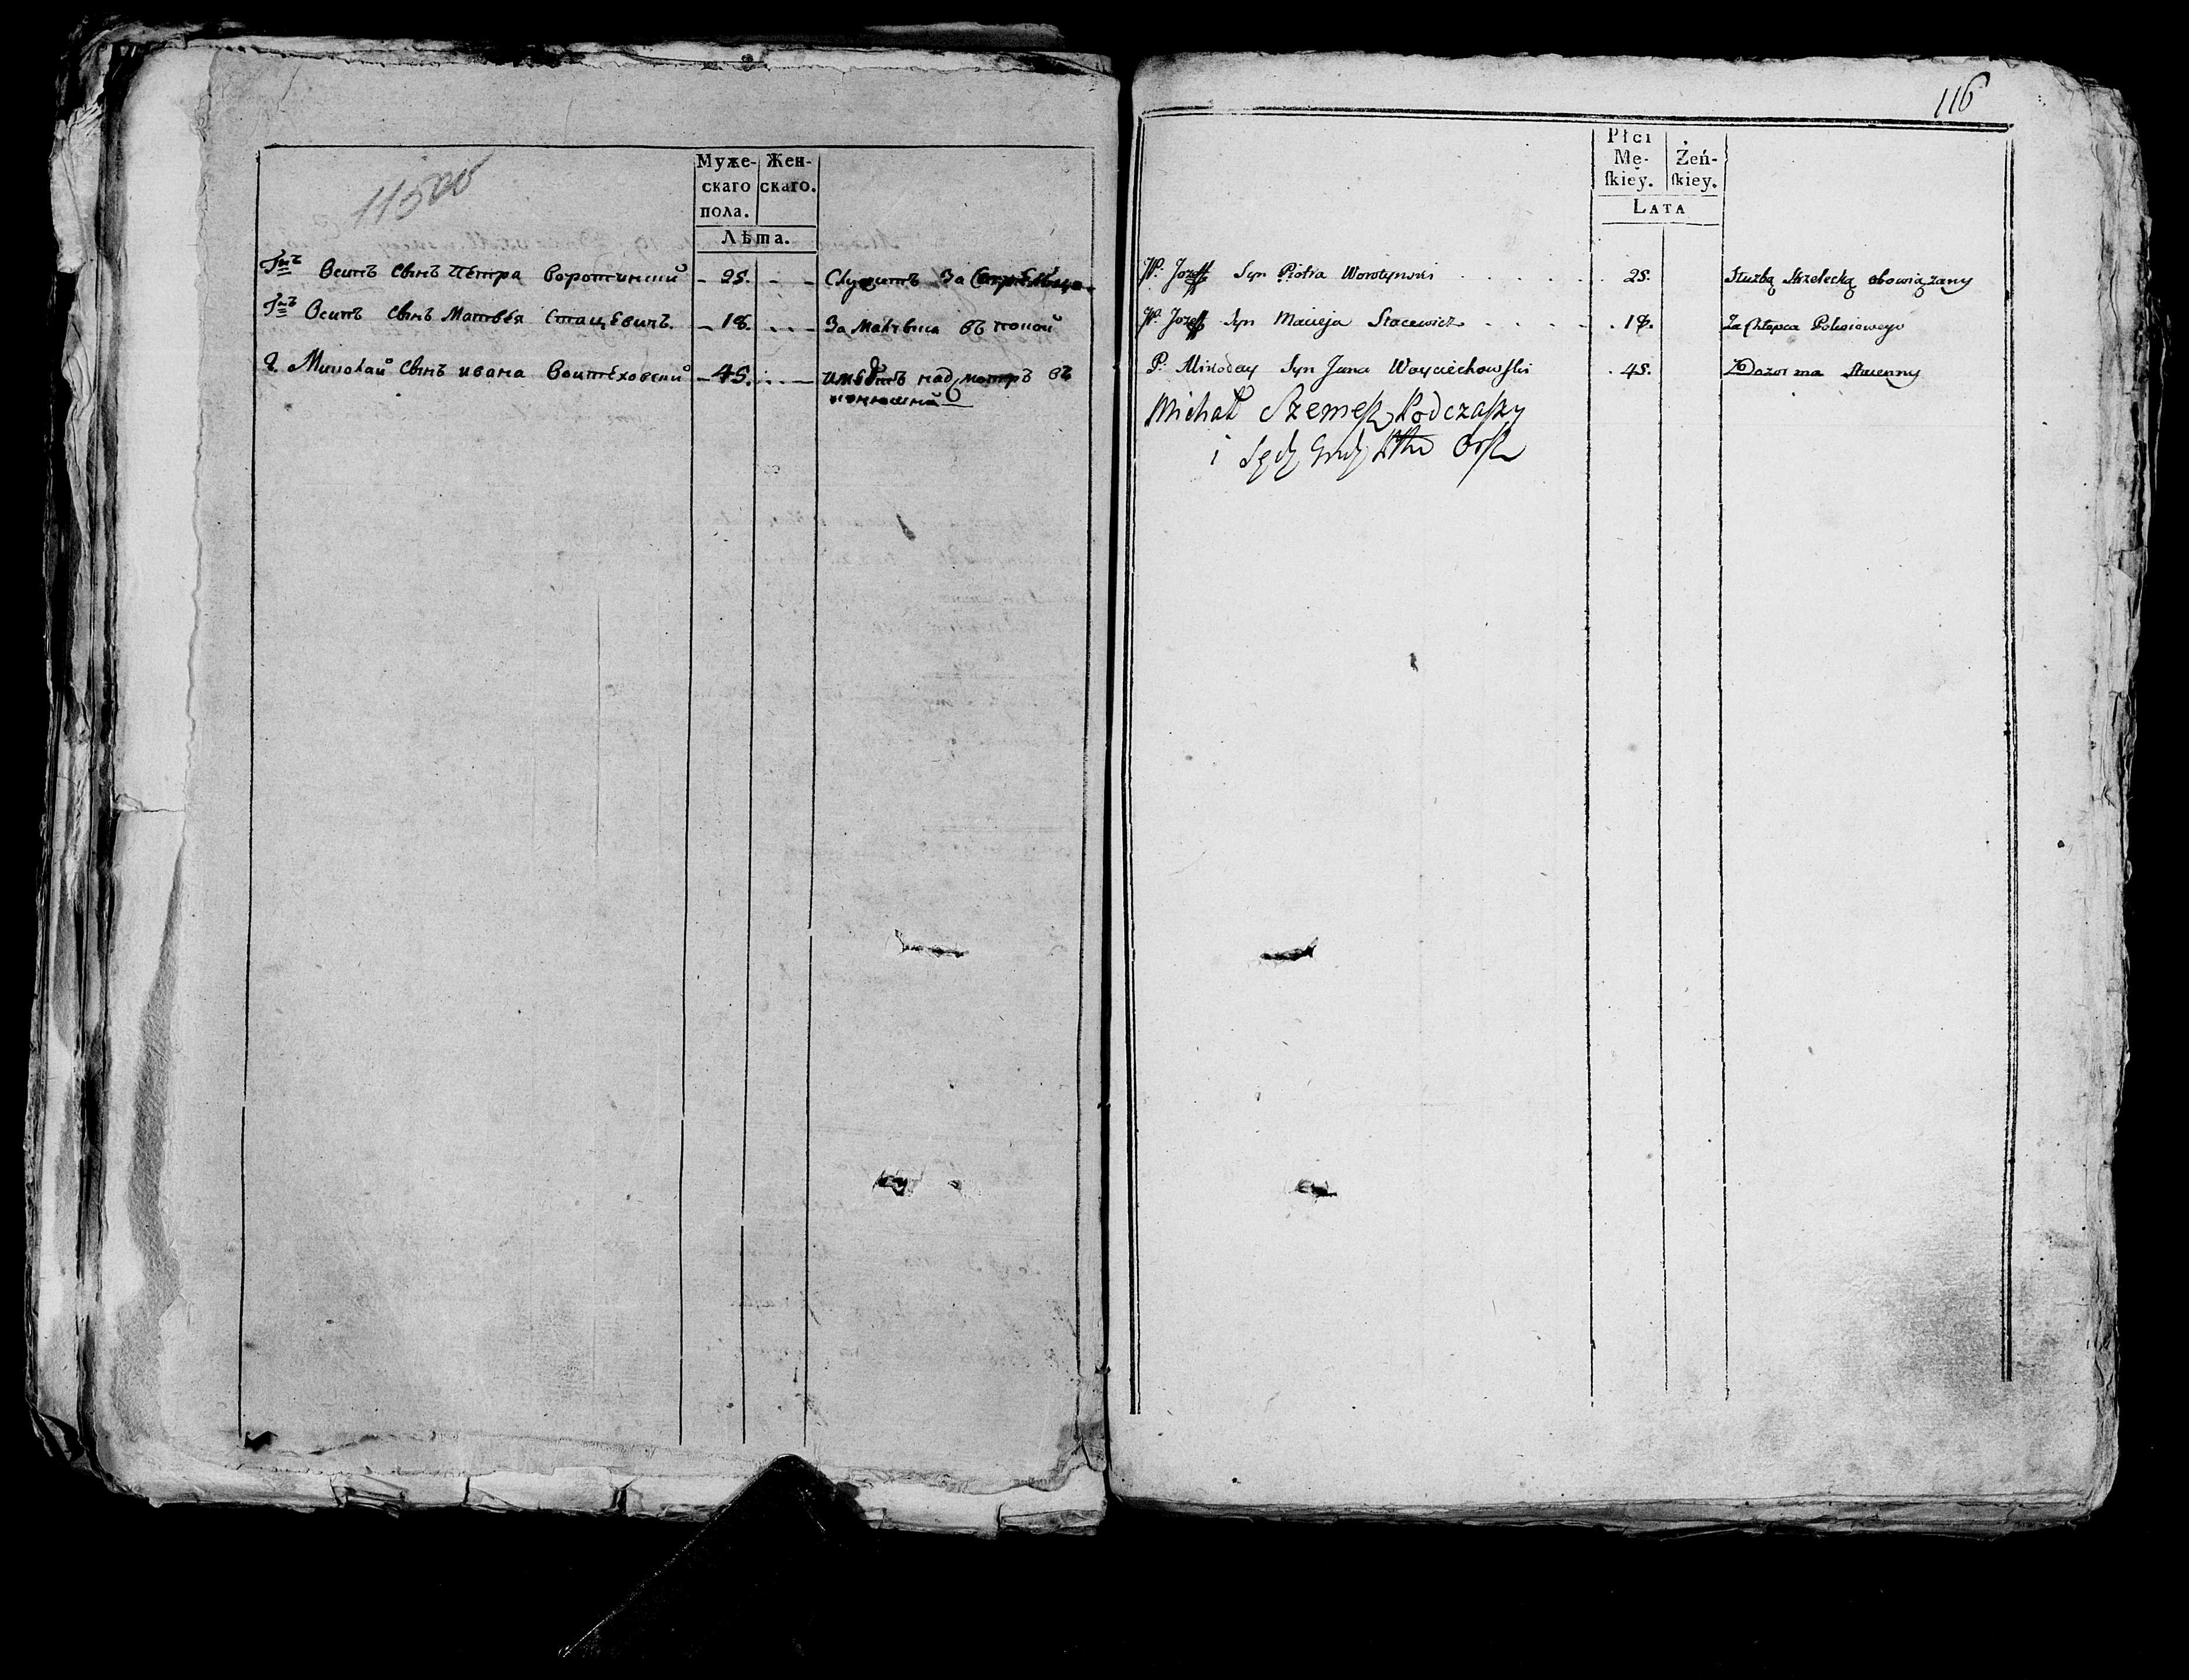 11500
Муже- Жен-
скаго скаго.
пола.
Лѣта.
Гнъ Осипъ Сынъ Пётра Воротинский 25. Служитъ За Стрельца
Гнъ Осипъ Сынъ Матвѣя Стацевичъ. 18. За Мальчика въ покой
Г. Миколай Сынъ ивана Воитеховский 45. имѣетъ над мотръ въ
конюшнй
116
Płci
Mę- Żeń-
ſkiey. ſkiey.
LATA
JP. Jozeff Syn Piotra Worotynski 25. Służbą Strzelecką obowiązany
JP. Jozeff Syn Macieja Stacewicz 18. Za Chłopca Pokoiowego
P. Mikołay Syn Jana Woyciechowſki 45. Dozor ma Stajenny
Michał Szemesz Podczaszy
i Sędz Grodz Ptu Orsz